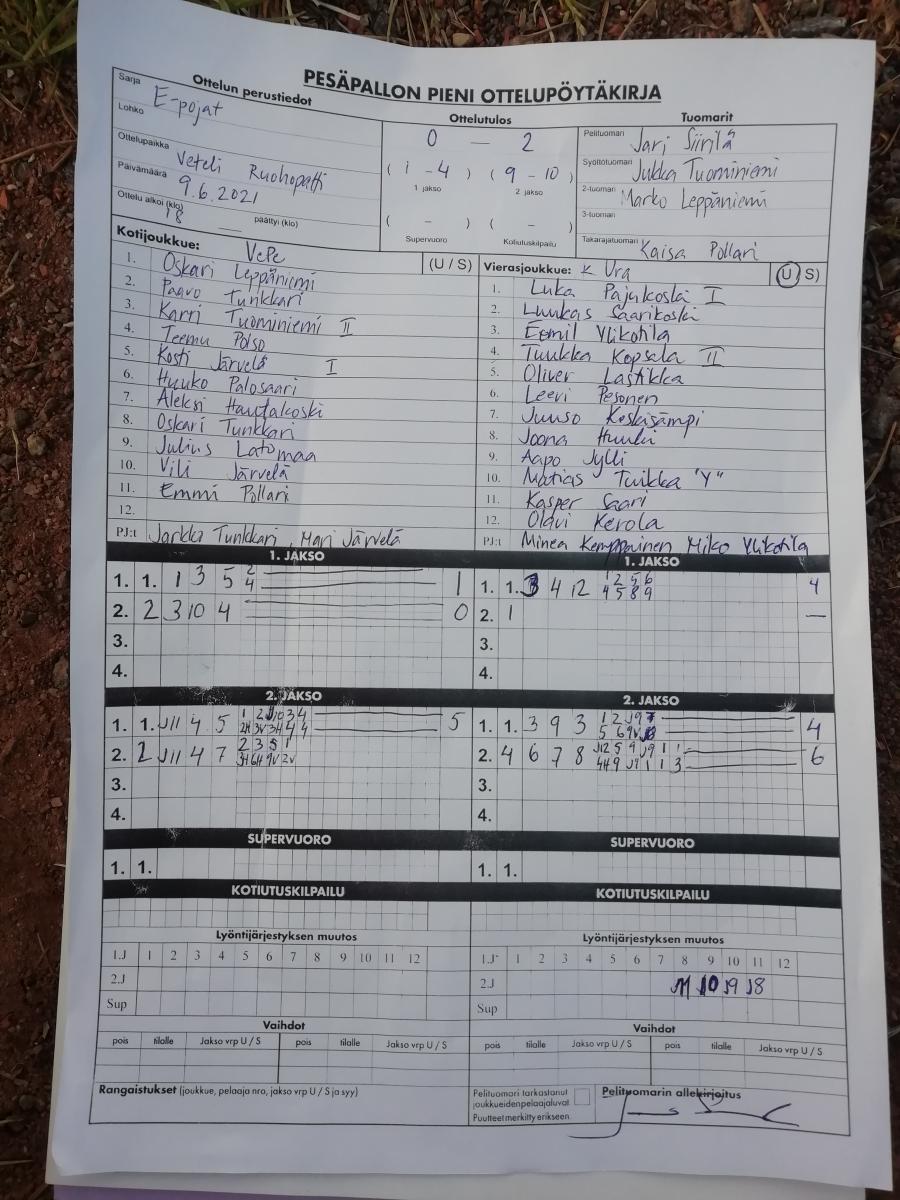 PESÄPALLON PIENI OTTELUPÖYTÄKIRJA
Ottelun perustiedot
Sarja E-pojat
Lohko
Ottelupaikka Veteli Ruohopatti
Päivämäärä 9.6.2021
Ottelu alkoi (klo) 18 päättyi (klo) —
Ottelutulos
0 — 2
( 1 - 4 ) ( 9 - 10 )
1 jakso 2 jakso
( - ) ( - )
Supervuoro Kotiutuskilpailu
Tuomarit
Pelituomari Jari Siirilä
Syöttötuomari Jukka Tuominiemi
2-tuomari Marko Leppäniemi
3-tuomari
Takarajatuomari Kaisa Pollari
Kotijoukkue: VePe (U / S)
1. Oskari Leppäniemi
2. Paavo Tunkkari
3. Karri Tuominiemi II
4. Teemu Polso
5. Kosti Järvelä I
6. Huuko Palosaari
7. Aleksi Hautakoski
8. Oskari Tunkkari
9. Julius Latomaa
10. Vili Järvelä
11. Emmi Pollari
12.
PJ:t Jarkko Tunkkari, Mari Järvelä
Vierasjoukkue: K Ura (U / S)
1. Luka Pajukoski I
2. Luukas Saarikoski
3. Eemil Ylikotila
4. Tuukka Kopsala II
5. Oliver Lastikka
6. Leevi Pesonen
7. Juuso Keskisämpi
8. Joona Huuki
9. Aapo Jylli
10. Matias Tuikka "Y"
11. Kasper Saari
12. Olavi Kerola
PJ:t Minea Kemppainen Miko Ylikotila
1. JAKSO
1. 1. 1 3 5 2 4 1
2. 2 3 10 4 0
3.
4.
1. JAKSO
1. 1. 3 4 12 1 2 5 6 4
4 5 8 9
2. 1 —
3.
4.
2. JAKSO
1. 1. J11 4 5 5
2. 2 J11 4 7 2 3 5 1
3.
4.
2. JAKSO
1. 1. 3 9 3 1 2 J9 7 4
2. 4 6 7 8 6
3.
4.
SUPERVUORO
1. 1.
SUPERVUORO
1. 1.
KOTIUTUSKILPAILU
KOTIUTUSKILPAILU
Lyöntijärjestyksen muutos
1.J 1 2 3 4 5 6 7 8 9 10 11 12
2.J
Sup
Lyöntijärjestyksen muutos
1.J 1 2 3 4 5 6 7 8 9 10 11 12
2.J J10 J9 J8
Sup
Vaihdot
pois tilalle Jakso vrp U / S pois tilalle Jakso vrp U / S
Vaihdot
pois tilalle Jakso vrp U / S pois tilalle Jakso vrp U / S
Rangaistukset (joukkue, pelaaja nro, jakso vrp U / S ja syy)
Pelituomari tarkastanut
joukkueidenpelaajaluvat.
Puutteet merkitty erikseen.
Pelituomarin allekirjoitus